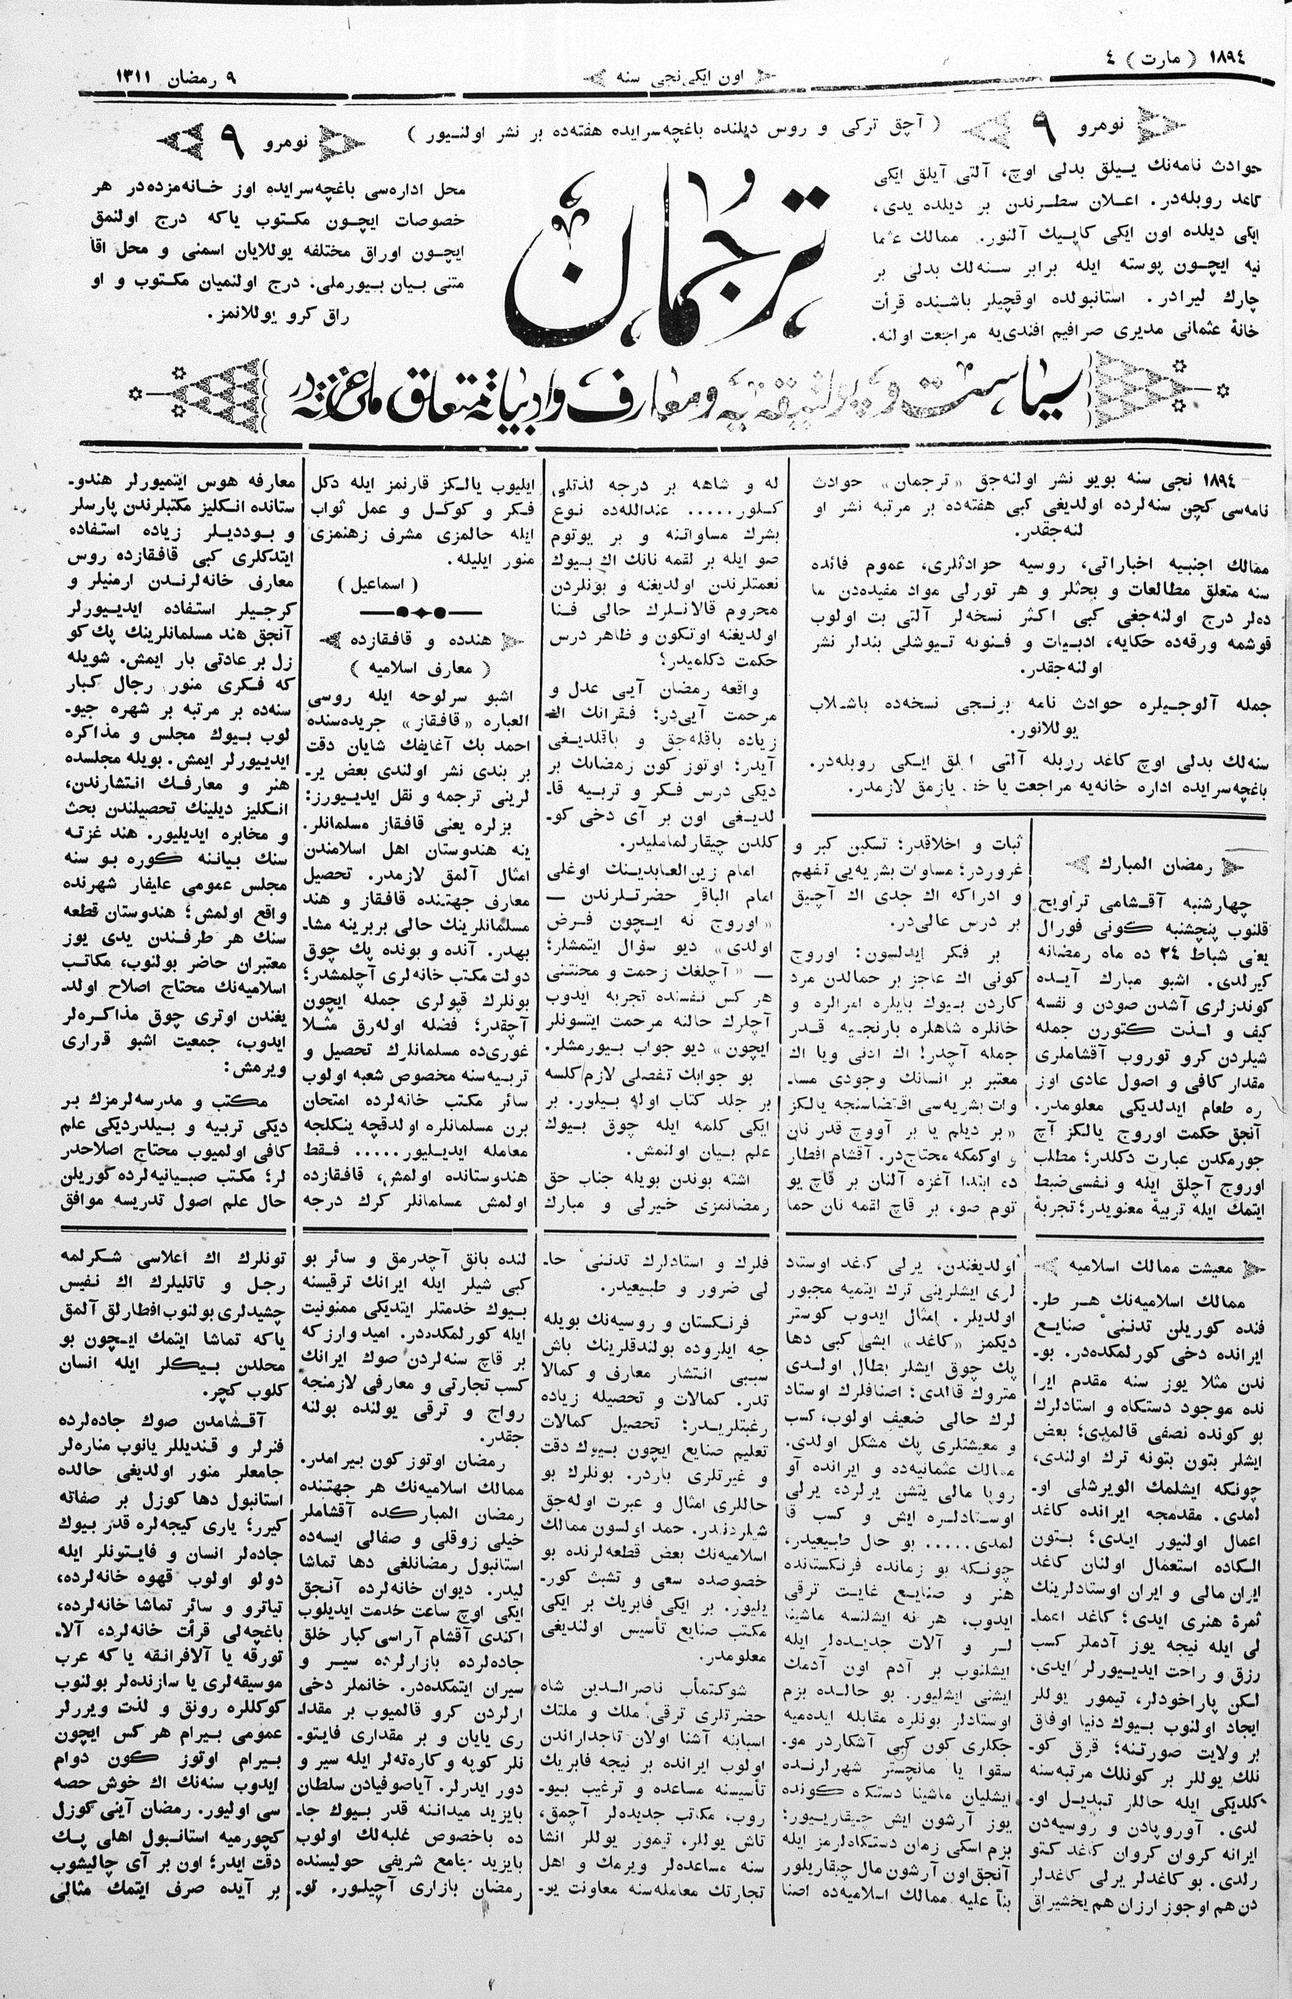 ١٨٩٤ ( مارت ) ٤
اون ایکی نجی سنه
٩ رمضان ١٣١١
نومرو ٩
( آچق ترکی و روس دیلنده باغچه‌سرایده هفته‌ده بر نشر اولنیور )
نومرو ٩
حوادث نامه‌نك ییلق بدلی اوچ، آلتی آیلق ایکی
کاغد روبله‌در. اعلان سطرندن بر دیلده یدی،
ایکی دیلده اون ایکی کاپیك آلنور. ممالك عثما
نیه ایچون پوسته ایله برابر سنه‌لك بدلی بر
چارك لیرادر. استانبولده اوقچیلر باشنده قرأت
خانهٔ عثمانی مدیری صرافیم افندی‌یه مراجعت اولنه.
ترجمان
محل اداره‌سی باغچه‌سرایده اوز خانه‌مزده‌در هر
خصوصات ایچون مکتوب یاکه درج اولنمق
ایچون اوراق مختلفه یوللایان اسمنی و محل اقا
متنی بیان بیورملی. درج اولنمیان مکتوب و او
راق کرو یوللانمز.
١٨٩٤ نجی سنه بویو نشر اولنه‌جق «ترجمان» حوادث
نامه‌سی کچن سنه‌لرده اولدیغی کبی هفته‌ده بر مرتبه نشر او
لنه‌جقدر.
ممالك اجنبیه اخباراتی، روسیه حوادثلری، عموم فائده
سنه متعلق مطالعات و بحثلر و هر تورلی مواد مفیده‌دن ما
ده‌لر درج اولنه‌جغی کبی اکثر نسخه‌لر آلتی بت اولوب
قوشمه ورقه‌ده حکایه، ادبیات و فنونه تیوشلی بندلر نشر
اولنه‌جقدر.
جمله آلوجیلره حوادث نامه برنجی نسخه‌ده باشلاب
یوللانور.
سنه‌لك بدلی اوچ کاغد روبله آلتی ایلق ایکی روبله‌در.
باغچه‌سرایده اداره خانه‌یه مراجعت یا خط یازمق لازمدر.
رمضان المبارك
چهارشنبه آقشامی تراویح
قلنوب پنچشنبه کونی فورال
یعنی شباط ٢٤ ده ماه رمضانه
کیرلدی. اشبو مبارك آیده
کوندزلری آشدن صودن و نفسه
کیف و لذت کتورن جمله
شیلردن کرو توروب آقشاملری
مقدار کافی و اصول عادی اوز
ره طعام ایدلدیکی معلومدر.
آنجق حکمت اوروج یالکز آچ
جورمکدن عبارت دکلدر؛ مطلب
اوروج آچلق ایله و نفسی ضبط
ایتمك ایله تربیهٔ معنویدر؛ تجربهٔ
ثبات و اخلاقدر؛ تسکین کبر و
غروردر؛ مساوات بشریه‌یی تفهم
و ادراکه اك جدی اك آچیق
بر درس عالی‌در.
بر فکر ایدلسون: اوروج
کونی اك عاجز بر حمالدن مرد
کاردن بیوك بایلره امرالره و
خانلره شاهلره بارنجیه قدر
جمله آچدر! اك ادنی ویا اك
معتبر بر انسانك وجودی مسا-
وات بشریه‌سی اقتضاسنجه یالکز
«بر دیلم یا بر آووچ قدر نان
و اوکمکه محتاج‌در. آقشام افطار
ده ابتدا آغزه آلنان بر قاچ یو
توم صو، بر قاچ لقمه نان حما
له و شاهه بر درجه لذتلی
کلور..... عندالله‌ده نوع
بشرك مساواتنه و بر یوتوم
صو ایله بر لقمه نانك اك بیوك
نعمتلرندن اولدیغنه و بونلردن
محروم قالانلرك حالی فنا
اولدیغنه اوتکون و ظاهر درس
حکمت دکلمیدر؟
واقعه رمضان آیی عدل و
مرحمت آیی‌در؛ فقرانك اك
زیاده باقله‌جق و باقلدیغی
آیدر؛ اوتوز کون رمضانك بر
دیکی درس فکر و تربیه قا-
لدیغی اون بر آی دخی کو-
کلدن چیقارلماملیدر.
امام زین‌العابدینك اوغلی
امام الباقر حضرتلرندن —
«اوروج نه ایچون فرض
اولدی» دیو سؤال ایتمشلر؛
— «آچلغك زحمت و محنتنی
هر کس نفسنده تجربه ایدوب
آچلرك حالنه مرحمت ایتسونلر
ایچون» دیو جواب بیورمشلر.
بو جوابك تفصلی لازم کلسه
بر جلد کتاب اوله بیلور. بر
ایکی کلمه ایله چوق بیوك
علم بیان اولنمش.
اشته بوندن بویله جناب حق
رمضانمزی خیرلی و مبارك
ایلیوب یالکز قارنمز ایله دکل
فکر و کوکل و عمل ثواب
ایله حالمزی مشرف زهنمزی
منور ایلیله.
( اسماعیل )
هندده و قافقازده
( معارف اسلامیه )
اشبو سرلوحه ایله روسی
العباره «قافقاز» جریده‌سنده
احمد بك آغایفك شایان دقت
بر بندی نشر اولندی بعض یر-
لرینی ترجمه و نقل ایدیورز:
بزلره یعنی قافقاز مسلمانلر.
ینه هندوستان اهل اسلامندن
امثال آلمق لازمدر. تحصیل
معارف جهتنده قافقاز و هند
مسلمانلرینك حالی بربرینه مشا-
بهدر. آنده و بونده پك چوق
دولت مکتب خانه‌لری آچلمشدر؛
بونلرك قپولری جمله ایچون
آچقدر؛ فضله اوله‌رق مثلا
غوری‌ده مسلمانلرك تحصیل و
تربیه‌سنه مخصوص شعبه اولوب
سائر مکتب خانه‌لرده امتحان
برن مسلمانلره اولدقچه ینکلجه
معامله ایدیلیور..... فقط
هندوستانده اولمش، قافقازده
اولمش مسلمانلر کرك درجه
معارفه هوس ایتمیورلر هندو-
ستانده انکلیز مکتبلرندن پارسلر
و بوددیلر زیاده استفاده
ایتدکلری کبی قافقازده روس
معارف خانه‌لرندن ارمنیلر و
کرجیلر استفاده ایدیورلر
آنجق هند مسلمانلرینك پك کو
زل بر عادتی بار ایمش. شویله
که فکری منور رجال کبار
سنه‌ده بر مرتبه بر شهره جیو-
لوب بیوك مجلس و مذاکره
ایدیورلر ایمش. بویله مجلسده
هنر و معارفك انتشارندن،
انکلیز دیلینك تحصیلندن بحث
و مخابره ایدیلیور. هند غزته
سنك بیاننه کوره بو سنه
مجلس عمومی علیغار شهرنده
واقع اولمش؛ هندوستان قطعه
سنك هر طرفندن یدی یوز
معتبران حاضر بولنوب، مکاتب
اسلامیه‌نك محتاج اصلاح اولد-
یغندن اوتری چوق مذاکره‌لر
ایدوب، جمعیت اشبو قراری
ویرمش:
مکتب و مدرسه‌لرمزك بر
دیکی تربیه و بیلدردیکی علم
کافی اولمیوب محتاج اصلاحدر
لر؛ مکتب صبیانیه‌لرده کوریلن
حال علم اصول تدریسه موافق
معیشت ممالك اسلامیه
ممالك اسلامیه‌نك هر طر-
فنده کوریلن تدننیٔ صنایع
ایرانده دخی کورلمکده‌در. بو-
ندن مثلا یوز سنه مقدم ایرا
نده موجود دستکاه و استادلرك
بو کونده نصفی قالمدی؛ بعض
ایشلر بتون بتونه ترك اولندی،
چونکه ایشلمك الویرشلی او-
لمدی. مقدمجه ایرانده کاغد
اعمال اولنیور ایدی؛ بتون
الکاده استعمال اولنان کاغد
ایران مالی و ایران اوستادلرینك
ثمرهٔ هنری ایدی؛ کاغد اعما-
لی ایله نیجه یوز آدملر کسب
رزق و راحت ایدییورلر ایدی،
لکن پاراخودلر، تیمور یوللر
ایجاد اولنوب بیوك دنیا اوفاق
بر ولایت صورتنه؛ قرق کو-
نلك یوللر بر کونلك مرتبه‌سنه
کلدیکی ایله حاللر تبدیل او-
لدی. آوروپادن و روسیه‌دن
ایرانه کروان کروان کاغد کتو
رلدی. بو کاغدلر یرلی کاغدلر
دن هم اوجوز ارزان هم یخشیراق
اولدیغندن، یرلی کاغد اوستاد
لری ایشلرینی ترك ایتمیه مجبور
اولدیلر. امثال ایدوب کوستر
دیکمز «کاغد» ایشی کبی دها
پك چوق ایشلر بطال اولدی
متروك قالدی؛ اصنافلرك اوستاد
لرك حالی ضعیف اولوب، کسب
و معیشتلری پك مشکل اولدی.
ممالك عثمانیه‌ده و ایرانده آو
روپا مالی یتشن یرلرده یرلی
اوستادلره ایش و کسب قا
لمدی..... بو حال طبیعیدر،
چونکه بو زمانده فرنکستنده
هنر و صنایع غایت ترقی
ایدوب، هر نه ایشلنسه ماشینا
لر و آلات جدیده‌لر ایله
ایشلنوب بر آدم اون آدمك
ایشنی ایشلیور. بو حالده بزم
اوستادلر بونلره مقابله ایده‌میه
جکلری کون کبی آشکاردر مو-
سقوا یا مانچستر شهرلرنده
ایشلیان ماشینا دستکه کونده
یوز آرشون ایش چیقاریور؛
بزم اسکی زمان دستکاه‌لرمز ایله
آنجق اون آرشون مال چیقاریلور
بنآ علیه ممالك اسلامیه‌ده اصنا
فلرك و استادلرك تدننیٔ حا-
لی ضرور و طبیعیدر.
فرنکستان و روسیه‌نك بویله
جه ایلروده بولندقلرینك باش
سببی انتشار معارف و کمالا
تدر. کمالات و تحصیله زیاده
رغبتلریدر؛ تحصیل کمالات
تعلیم صنایع ایچون بیوك دقت
و غیرتلری باردر. بونلرك بو
حاللری امثال و عبرت اوله‌جق
شیلردندر. حمد اولسون ممالك
اسلامیه‌نك بعض قطعه‌لرنده بو
خصوصده سعی و تشبث کور-
یلیور. بر ایکی فابریك بر ایکی
مکتب صنایع تأسیس اولندیغی
معلومدر.
شوکتمأب ناصرالدین شاه
حضرتلری ترقیٔ ملك و ملتك
اسبابنه آشنا اولان تاجداراندن
اولوب ایرانده بر نیجه فابریك
تأسیسنه مساعده و ترغیب بیو-
روب، مکتب جدیده‌لر آچمق،
تاش یوللر، تیمور یوللر انشا
سنه مساعده‌لر ویرمك و اهل
تجارتك معامله‌سنه معاونت یو-
لنده بانق آچدرمق و سائر بو
کبی شیلر ایله ایرانك ترقیسنه
بیوك خدمتلر ایتدیکی ممنونیت
ایله کورلمکده‌در. امید وارزکه
بر قاچ سنه‌لردن صوك ایرانك
کسب تجارتی و معارفی لازمنجه
رواج و ترقی یولنده بولنه
جقدر.
رمضان اوتوز کون بیرامدر.
ممالك اسلامیه‌نك هر جهتنده
رمضان المبارکده آقشاملر
خیلی زوقلی و صفالی ایسه‌ده
استانبول رمضانلغی دها تماشا
لیدر. دیوان خانه‌لرده آنجق
ایکی اوچ ساعت خدمت ایدیلوب
اکندی آقشام آراسی کبار خلق
جاده‌لرده بازارلرده سیر و
سیران ایتمکده‌در. خانملر دخی
ارلردن کرو قالمیوب بر مقدا-
ری یایان و بر مقداری فایتو-
نلر کوپه و کاره‌ته‌لر ایله سیر و
دور ایدرلر. آیاصوفیادن سلطان
بایزید میداننه قدر بیوك جا-
ده باخصوص غلبه‌لك اولوب
بایزید جامع شریفی حولیسنده
رمضان بازاری آچیلور. تو-
تونلرك اك اعلاسی شکرلمه
رجل و تاتلیلرك اك نفیس
چشیدلری بولنوب افطارلق آلمق
یاکه تماشا ایتمك ایچون بو
محلدن بیکلر ایله انسان
کلوب کچر.
آقشامدن صوك جاده‌لرده
فنرلر و قندیللر یانوب مناره‌لر
جامعلر منور اولدیغی حالده
استانبول دها کوزل بر صفاته
کیرر؛ یاری کیجه‌لره قدر بیوك
جاده‌لر انسان و فایتونلر ایله
دولو اولوب قهوه خانه‌لرده،
تیاترو و سائر تماشا خانه‌لرده،
باغچه‌لی قرأت خانه‌لرده، آلا-
تورقه یا آلافرانقه یاکه عرب
موسیقه‌لری یا سازنده‌لر بولنوب
کوکللره رونق و لذت ویررلر
عمومی بیرام هر کس ایچون
بیرام اوتوز کون دوام
ایدوب سنه‌نك اك خوش حصه
سی اولیور. رمضان آینی کوزل
کچورمیه استانبول اهلی پك
دقت ایدر؛ اون بر آی چالیشوب
بر آیده صرف ایتمك مثالی